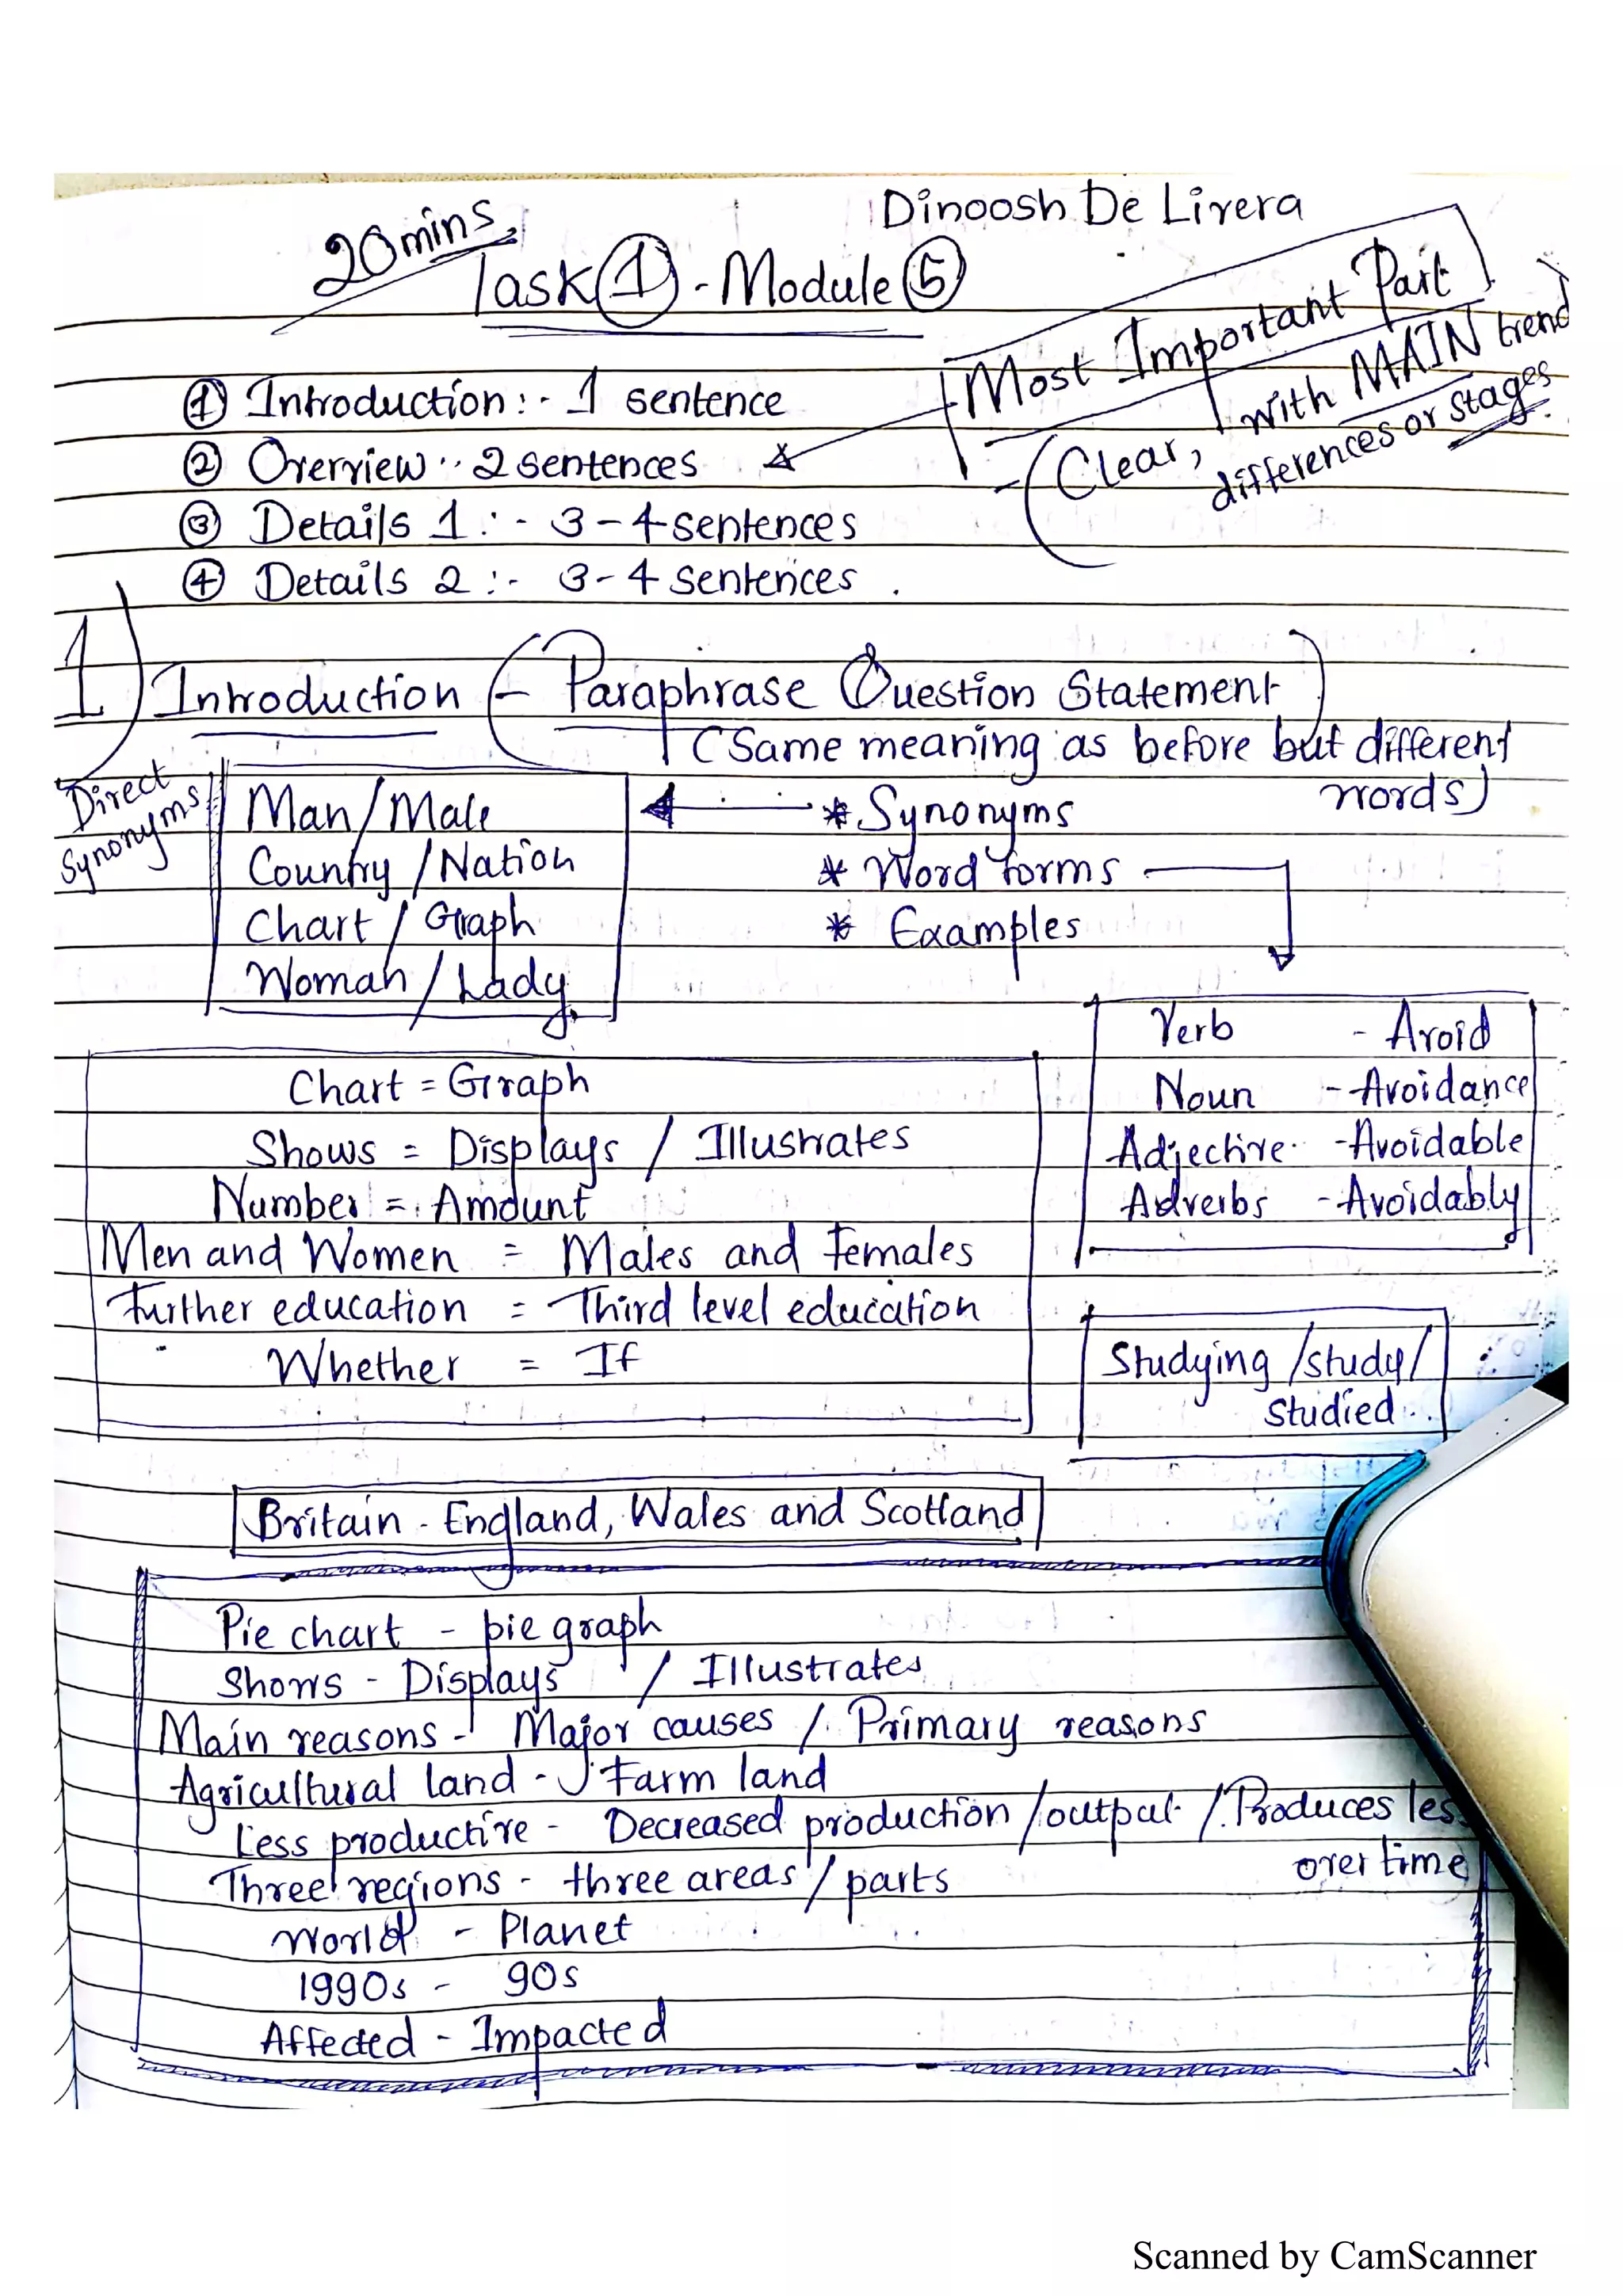 Dinoosh De Livera
20mins
Task ① - Module ⑤
Most Important Part
Clear, with MAIN trend
differences or stages
① Introduction :- 1 sentence
② Overview :- 2 sentences
③ Details 1 :- 3-4 sentences
④ Details 2 :- 3-4 sentences
1) Introduction (- Paraphrase Question Statement)
(Same meaning as before but different
words)
Direct
Synonyms
Man/Male
Country/Nation
Chart/Graph
Woman/Lady
* Synonyms
* Word forms
* Examples
Verb - Avoid
Noun - Avoidance
Adjective - Avoidable
Adverbs - Avoidably
Chart = Graph
Shows = Displays / Illustrates
Number = Amount
Men and Women = Males and Females
Further education = Third level education
Whether = If
Studying /study/
studied
Britain - England, Wales and Scotland
Pie chart - pie graph
Shows - Displays / Illustrates
Main reasons - Major causes / Primary reasons
Agricultural land - Farm land
Less productive - Decreased production /output / Produces les
over time
Three regions - three areas / parts
World - Planet
1990s - 90s
Affected - Impacted
Scanned by CamScanner